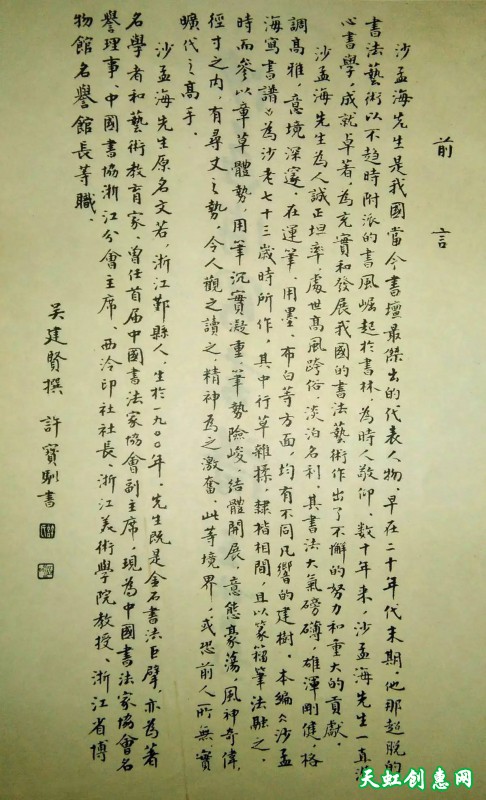 前言
沙孟海先生是我國當今書壇最傑出的代表人物。早在二十年代末期，他那超脫的
書法藝術以不趋時附派的書風崛起於書林，為時人敬仰。数十年来，沙孟海先生一直潜
心書學，成就卓著，為充實和發展我國的書法藝術作出了不懈的努力和重大的貢獻。
沙孟海先生為人誠正坦率，處世高風跨俗，淡泊名利，其書法大氣磅礴，雄渾剛健，格
調高雅，意境深邃。在運筆、用墨、布白等方面，均有不同凡響的建樹。本編《沙孟
海寫書譜》為沙老七十三歲時所作，其中行草雜揉，隸楷相間，且以篆籀筆法融之，
時而參以章草體勢，用筆沉實凝重，筆勢險峻，結體開展，意態豪蕩，風神奇偉，
徑寸之內，有尋丈之勢，令人觀之讀之，精神為之激奮，此等境界，或恐前人所無，實
曠代之高手。
沙孟海先生原名文若，浙江鄞縣人，生於一九〇〇年，先生既是金石書法巨擘，亦為著
名學者和藝術教育家，曾任首届中國書法家協會副主席，現為中國書法家協會名
譽理事、中國書協浙江分會主席、西泠印社社長、浙江美術學院教授、浙江省博
物館名譽館長等職。
吴建賢撰 許寶馴書
天虹创惠网